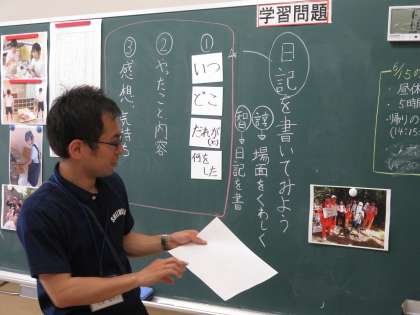 学習問題
日記を書いてみよう
詳 場面をくわしく
習 日記を書
①
いつ
どこ
だれが
何をした
② やったこと内容
③ 感想、気持ち
昼休
5時間
帰りの